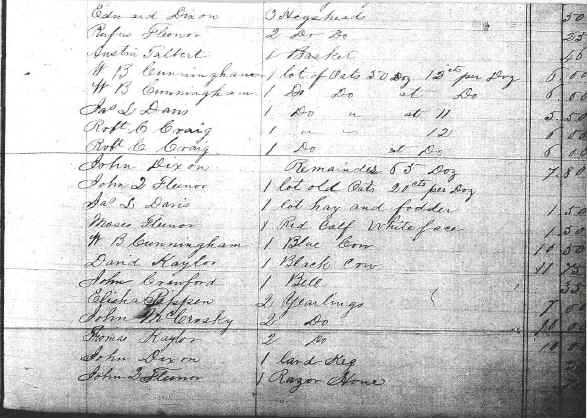 Edward Dixon 3 Hogshead 50
Rufus Fleenor 2 Do Do 25
Austin Talbert 1 Basket 40
W B Cunningham 1 lot of Oats 50 Doz 12cts per Doz 6.00
W B Cunningham 1 Do Do at Do 6.00
Jas L Davis 1 Do " at 11 5.50
Robt C Craig 1 " " 12 6 00
Robt C Craig 1 Do at Do 6 00
John Dixon Remainder 65 Doz 7.80
John Q Fleenor 1 lot old Oats 20cts per Doz
Jas L Davis 1 lot hay and fodder 1.50
Moses Fleenor 1 Red Calf White face 1.50
W B Cunningham 1 Blue Cow 10 50
David Kaylor 1 Black Cow 11 75
John Crawford 1 Bell 35
Elisha 2 Yearlings 7
John McCrosky 2 Do
Thomas Kaylor 2 Do
John Dixon 1 Lard Keg
John Q Fleenor 1 Razor Hone